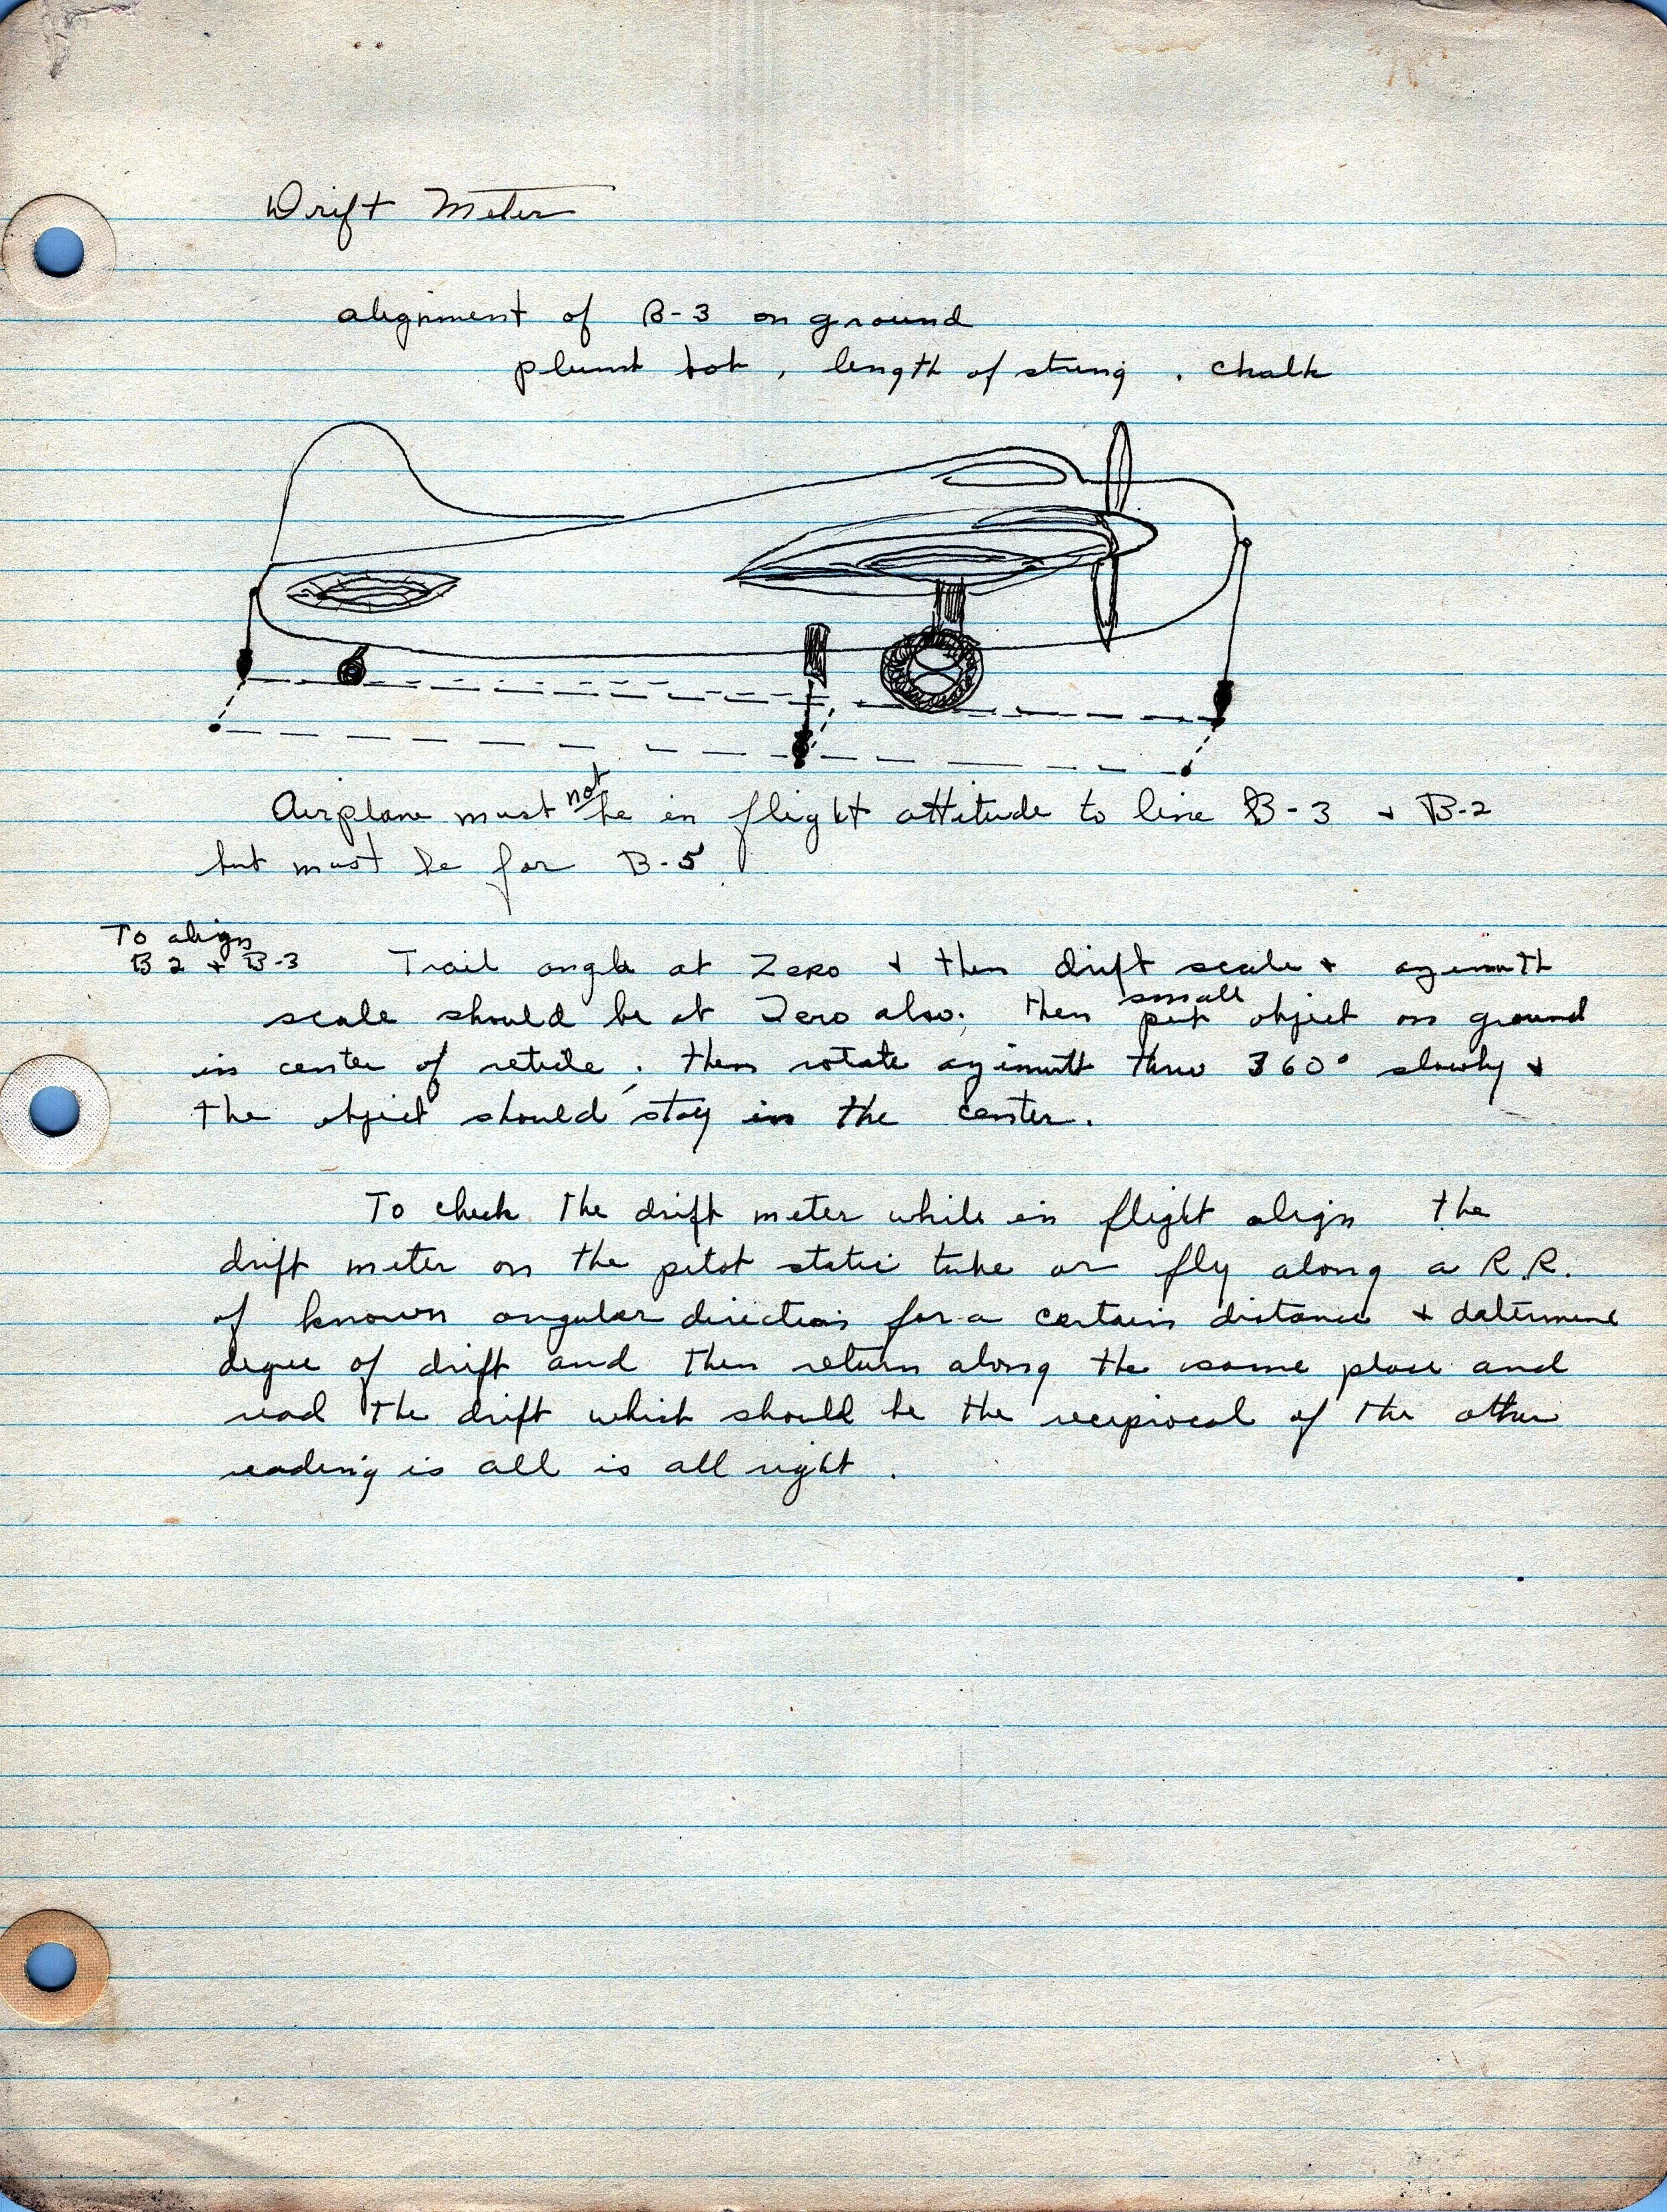 Drift Meter
alignment of B-3 on ground
plumb bob, length of string, chalk
Airplane must not be in flight attitude to line B-3 + B-2
but must be for B-5
To align
B 2 + B-3 Trail angle at Zero + then drift scale + azimuth
scale should be at Zero also, then put small object on ground
in center of reticle; then rotate azimuth thru 360° slowly +
the object should stay in the center.
To check the drift meter while in flight align the
drift meter on the pitot static tube or fly along a R.R.
of known angular direction for a certain distance + determine
degree of drift and then return along the same place and
read the drift which should be the reciprocal of the other
reading is all is all right.